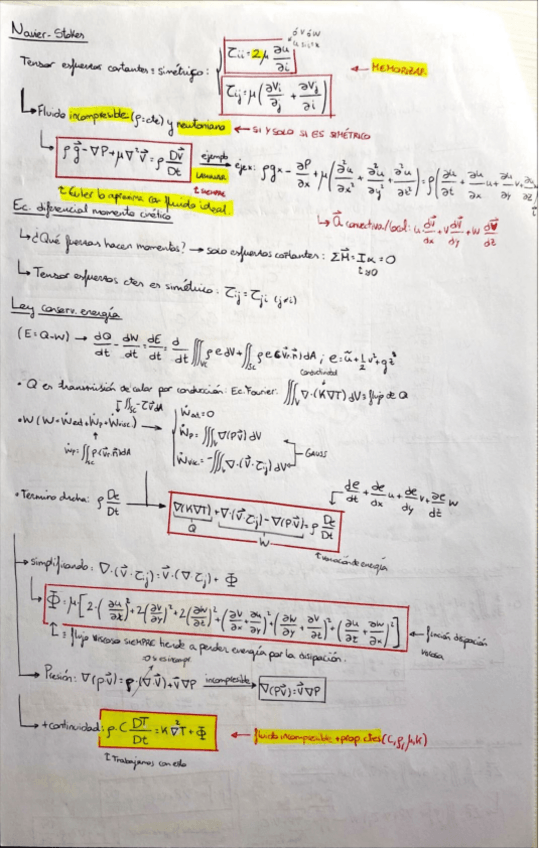 Navier-Stokes
ó v ó w
Tensor esfuerzos cortantes = simétrico: τii = 2μ ∂u/∂i
← MEMORIZAR
τij = μ(∂Vi/∂j + ∂Vj/∂i)
↳ Fluido incompresible (ρ=cte) y newtoniano ← SI Y SOLO SI ES SIMÉTRICO
↳ ρg⃗ - ∇P + μ∇²V⃗ = ρ DV⃗/Dt ejemplo → eje x: ρgx - ∂P/∂x + μ(∂²u/∂x² + ∂²u/∂y² + ∂²u/∂z²) = ρ(∂u/∂t + ∂u/∂x u + ∂u/∂y v + ∂u/∂z
↑ Euler lo aproxima con fluido ideal.
↳ a⃗ convectiva/local: u dv⃗/dx + v dv⃗/dy + w dv⃗/dz
Ec. diferencial momento cinético
↳ ¿Qué fuerzas hacen momentos? → solo esfuerzos cortantes: ΣM⃗ = Iα = 0
↳ Tensor esfuerzos ctes es simétrico: τij = τji (j≠i)
Ley conserv. energía
(E=Q-W) → dQ/dt - dW/dt = dE/dt = d/dt ∭vc ρe dV + ∬sc ρe(v⃗r·n⃗)dA ; e = û + ½v² + gz
conductividad
• Q en transmisión de calor por conducción: Ec. Fourier. ∭v ∇·(K∇T) dV = flujo de Q
∬sc -τV⃗dA
• W (Ẇ = Ẇed + Ẇp + Ẇvisc) → Ẇed = 0
Ẇp = ∭v ∇(PV⃗) dV
Ẇp = ∬sc P(v⃗r·n⃗)dA
Ẇvisc = -∭v ∇·(V⃗·τij) dV
GAUSS
de/dt + de/dx u + de/dy v + de/dz w
• Termino dcha: ρ De/Dt → ∇(K∇T) + ∇·(V⃗·τij) - ∇(PV⃗) = ρ De/Dt
Q W
↑ ecuación de energía
→ simplificando: ∇·(V⃗·τij) = V⃗·(∇·τij) + Φ
↳ Φ = μ·[2·(∂u/∂x)² + 2(∂v/∂y)² + 2(∂w/∂z)² + (∂v/∂x + ∂u/∂y)² + (∂w/∂y + ∂v/∂z)² + (∂u/∂z + ∂w/∂x)²] ← función disipación viscosa
↳ = flujo viscoso SIEMPRE tiende a perder energía por la disipación.
→ Presión: ∇(pV⃗) = p·(∇·V⃗) + V⃗∇P incompresible → ∇(PV⃗) = V⃗∇P
↳ + continuidad: ρ·C DT/Dt = K∇²T + Φ ← fluido incompresible + prop. ctes (C, ρ, μ, K)
↑ Trabajamos con esto